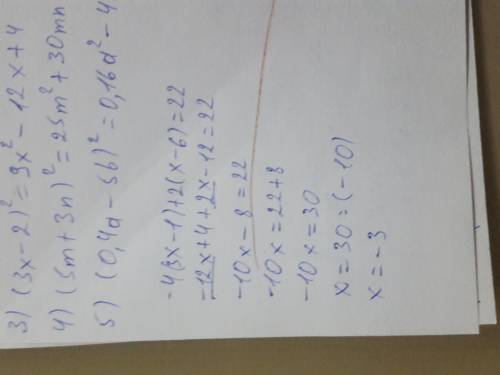 3) (3x-2)² = 9x² - 12x + 4
4) (5m+3n)² = 25m² + 30mn
5) (0,4a-5b)² = 0,16a² - 4
-4(3x-1)+2(x-6)=22
-12x+4+2x-12=22
-10x-8=22
-10x=22+8
-10x=30
x=30:(-10)
x=-3